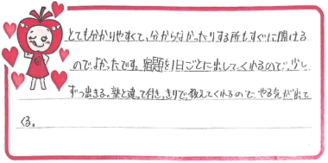 とても分かりやすくて、分からなかったりする所もすぐに聞ける
ので、よかったです。宿題を1日ごとに出してくれるので、少し
ずつ出きる。塾と違って付きっきりで、教えてくれるので、やる気が出て
くる。